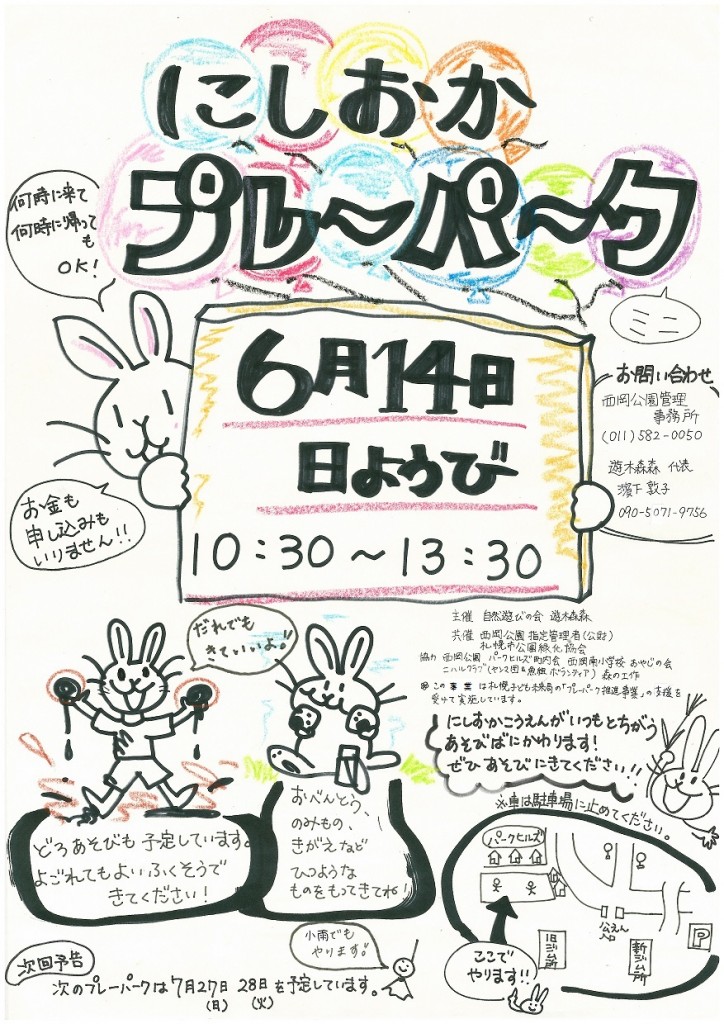 にしおか
プレーパーク
何時に来て
何時に帰って
も
OK!
ミニ
6月14日
日ようび
10:30~13:30
お問い合わせ
西岡公園管理
事務所
(011)582-0050
遊木森森 代表
濱下敦子
090-5071-9756
お金も
申し込みも
いりません!!
主催 自然遊びの会 遊木森森
共催 西岡公園 指定管理者(公財)
札幌市公園緑化協会
協力 西岡公園 パークヒルズ町内会 西岡南小学校 おやじの会
ニハルクラブ(ヤンマ団&魚組 ボランティア) 森の工作
※この事業は札幌子ども未来局の「プレーパーク推進事業」の支援を
受けて実施しています。
だれでも
きていいよ!!
にしおかこうえんがいつもとちがう
あそびばにかわります!
ぜひあそびにきてください!!
どろあそびも予定しています。
よごれてもよいふくそうで
きてください!
おべんとう、
のみもの、
きがえなど
ひつような
ものをもってきてね!
※車は駐車場に止めてください。
パークヒルズ
公えん
入口
旧ジム所
新ジム所
P
ここで
やります!!
小雨でも
やります!!
次回予告
次のプレーパークは7月27日28日を予定しています。
(月)(火)